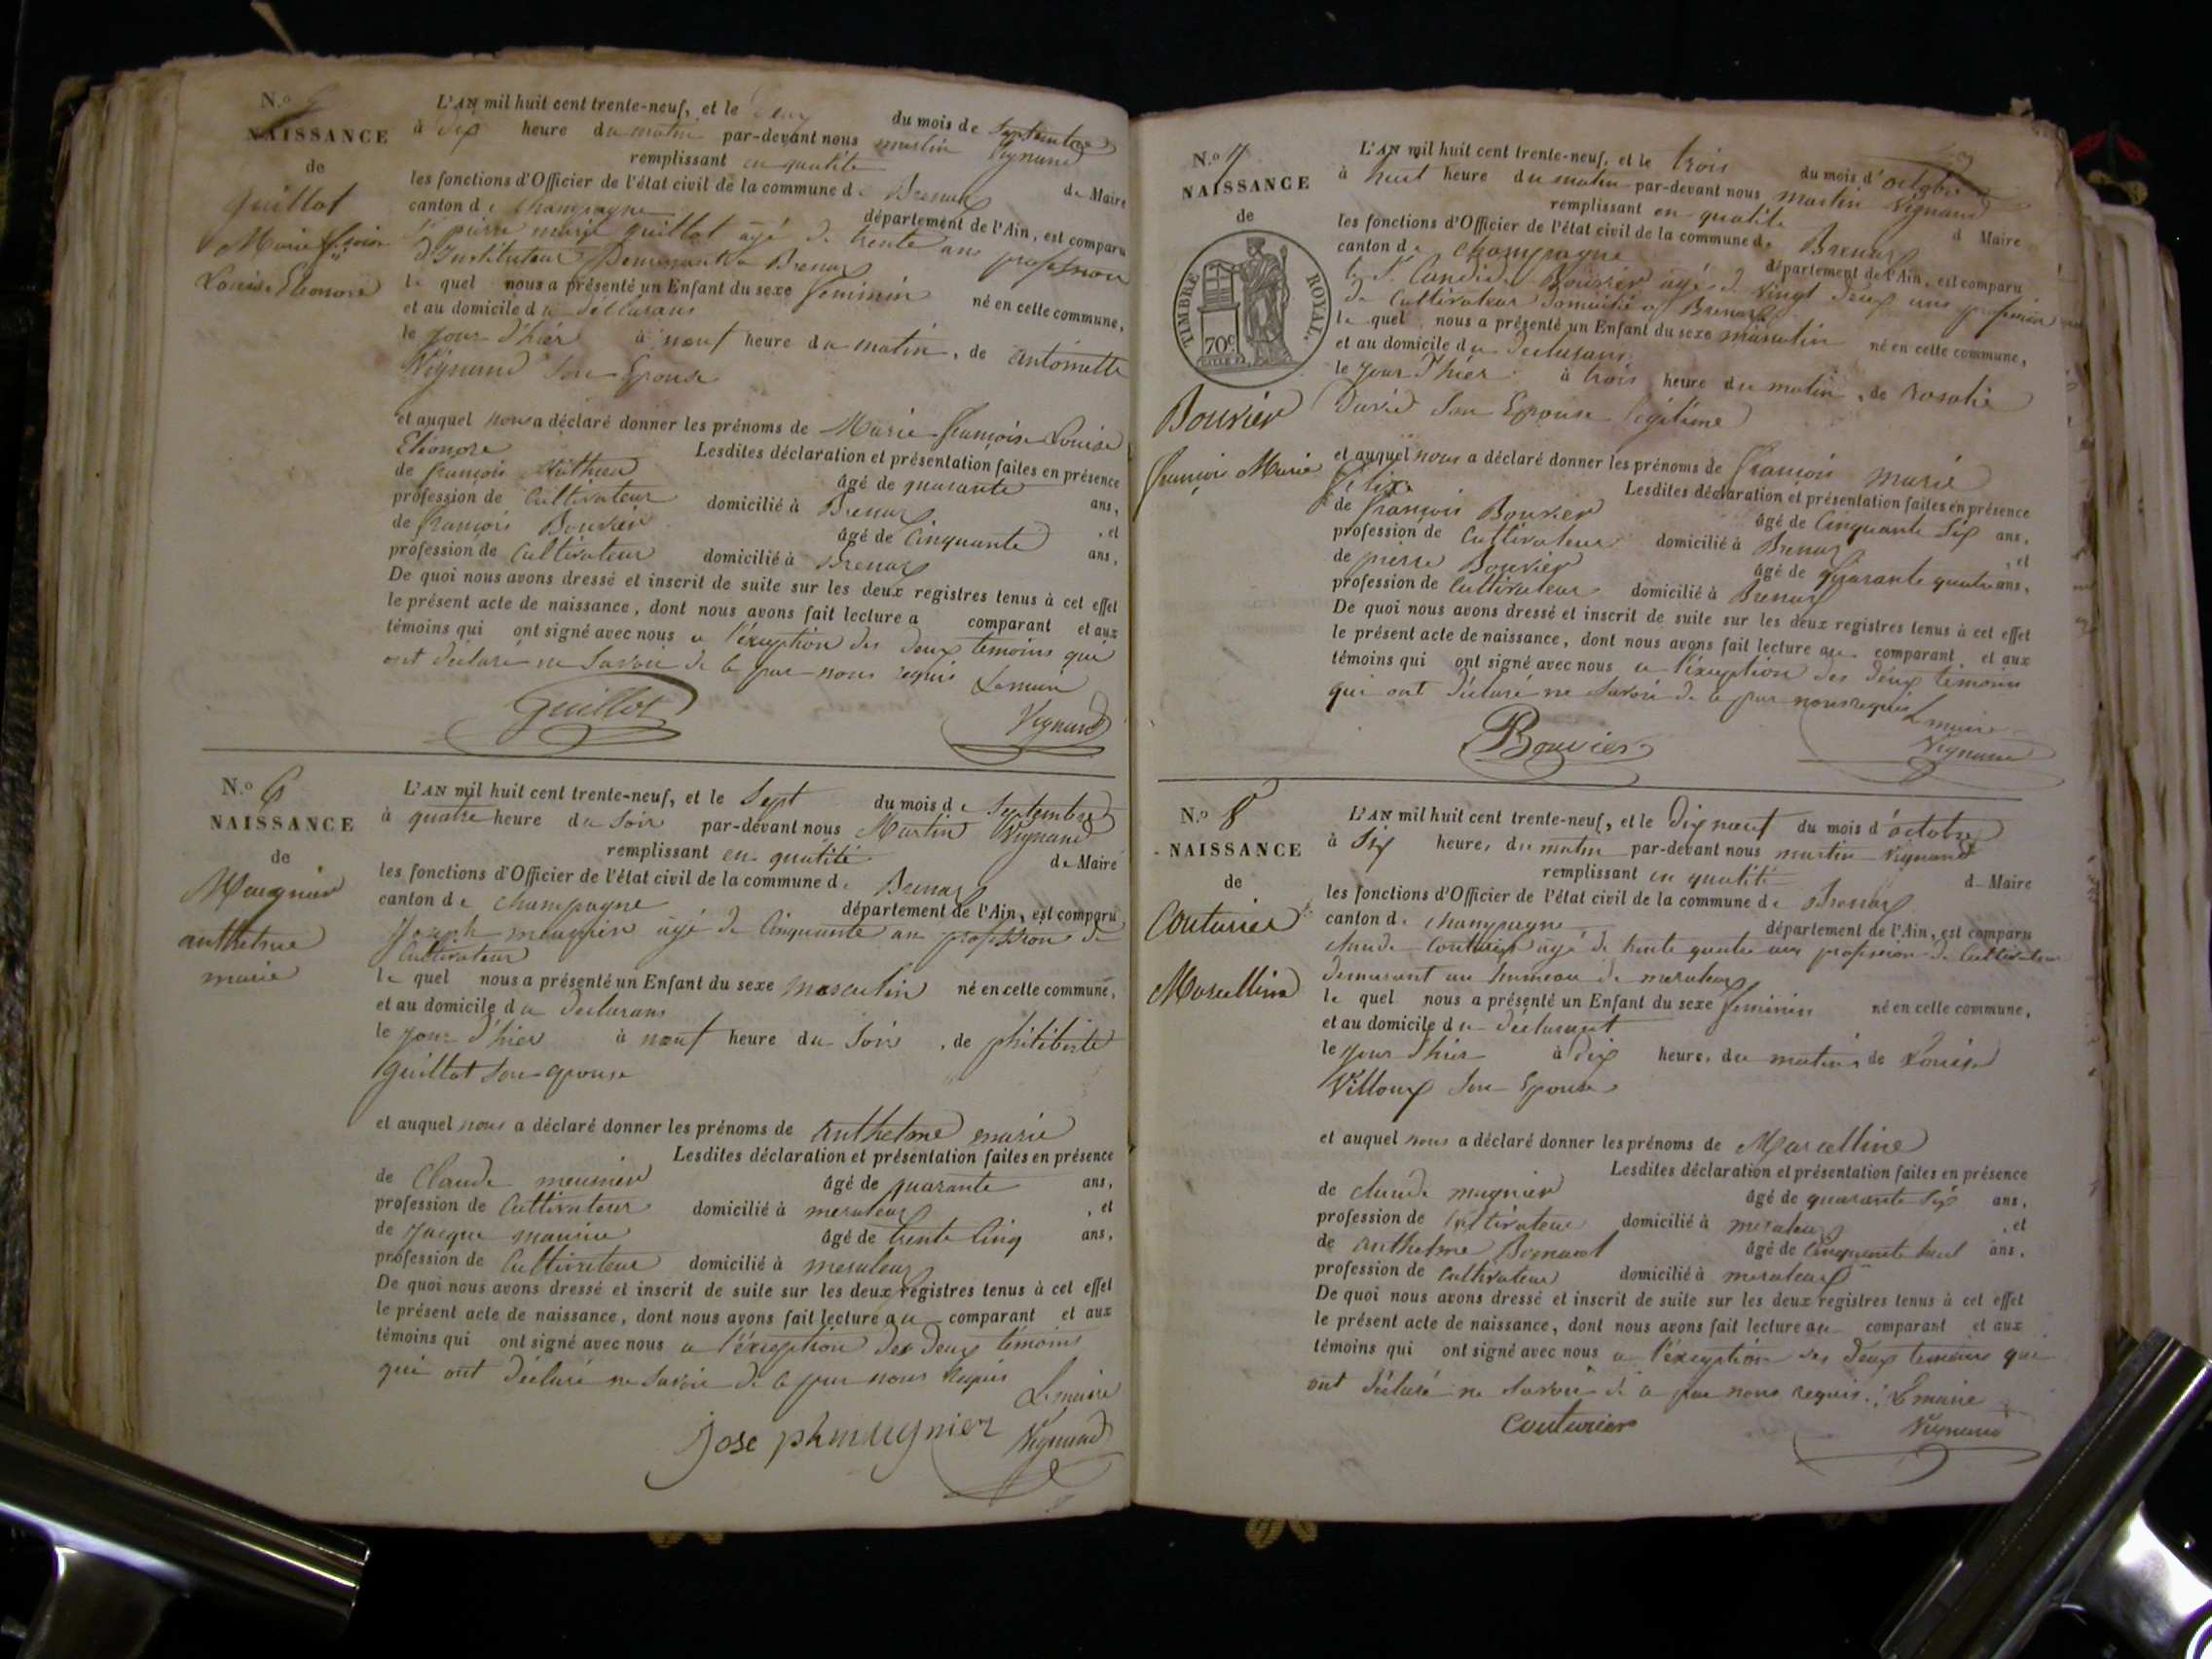 N.º 5
NAISSANCE
de
guillot
Marie françoise
Louise Eléonore
L'AN mil huit cent trente-neuf, et le deux du mois de Septembre
à dix heure du matin par-devant nous martin Vignand
remplissant en qualité de Maire
les fonctions d'Officier de l'état civil de la commune de Brenaz
canton de champagne département de l'Ain, est comparu
S. pierre marie guillot agé de trente ans profession
D'Instituteur Demeurant a Brenaz
le quel nous a présenté un Enfant du sexe feminin né en cette commune,
et au domicile du déclarans
le jour d'hier à neuf heure du matin, de antoinette
Vignand Son Epouse
et auquel nous a déclaré donner les prénoms de Marie françoise Louise
Eléonore Lesdites déclaration et présentation faites en présence
de françois Mathieu âgé de quarante ans,
profession de Cultivateur domicilié à Brenaz , et
de françois Bouvier âgé de Cinquante ans,
profession de Cultivateur domicilié à Brenaz
De quoi nous avons dressé et inscrit de suite sur les deux registres tenus à cet effet
le présent acte de naissance, dont nous avons fait lecture a comparant et aux
témoins qui ont signé avec nous a l'éxception des deux temoins qui
ont déclaré ne Savoir de le par nous requis Le maire
Guillot
Vignand
N.º 6
NAISSANCE
de
Meugnier
anthelme
marie
L'AN mil huit cent trente-neuf, et le Sept du mois de Septembre
à quatre heure du Soir par-devant nous Martin Vignand
remplissant en qualité de Maire
les fonctions d'Officier de l'état civil de la commune de Brenaz
canton de champagne département de l'Ain, est comparu
Joseph meugnier agé de Cinquante an profession de
Cultivateur
le quel nous a présenté un Enfant du sexe masculin né en cette commune,
et au domicile du declarans
le jour d'hier à neuf heure du Soir , de philiberte
guillot Son epouse
et auquel nous a déclaré donner les prénoms de anthelme marie
Lesdites déclaration et présentation faites en présence
de Claude meunier âgé de quarante ans,
profession de Cultivateur domicilié à meraleaz , et
de Jacque maurice âgé de trente Cinq ans,
profession de Cultivateur domicilié à meraleaz
De quoi nous avons dressé et inscrit de suite sur les deux registres tenus à cet effet
le présent acte de naissance, dont nous avons fait lecture au comparant et aux
témoins qui ont signé avec nous a l'éxception des deux témoins
qui ont déclaré ne Savoir de le par nous requis
Le maire
Joseph meugnier Vignand
N.º 7
NAISSANCE
de
TIMBRE ROYAL.
70c
Bouvier
françois Marie
L'AN mil huit cent trente-neuf, et le trois du mois d'octobre
à huit heure du matin par-devant nous martin Vignand
remplissant en qualité d Maire
les fonctions d'Officier de l'état civil de la commune de Brenaz
canton de champagne département de l'Ain, est comparu
le S. Candide Bouvier agé de Vingt deux ans profession
de Cultivateur domicilié a Brenaz
le quel nous a présenté un Enfant du sexe masculin né en cette commune,
et au domicile du declarans
le jour d'hier à trois heure du matin, de Rosalie
David Son Epouse legitime
et auquel nous a déclaré donner les prénoms de françois marie
félix Lesdites déclaration et présentation faites en présence
de françois Bouvier âgé de Cinquante Six ans,
profession de Cultivateur domicilié à Brenaz , et
de pierre Bouvier âgé de quarante quatre ans,
profession de Cultivateur domicilié à Brenaz
De quoi nous avons dressé et inscrit de suite sur les deux registres tenus à cet effet
le présent acte de naissance, dont nous avons fait lecture au comparant et aux
témoins qui ont signé avec nous a l'éxception des deux témoins
qui ont déclaré ne Savoir de le par nous requis Le maire
Bouvier
Vignand
N.º 8
NAISSANCE
de
Couturier
Marcelline
L'AN mil huit cent trente-neuf, et le Dix neuf du mois d'octobre
à Six heures du matin par-devant nous martin Vignand
remplissant en qualité d Maire
les fonctions d'Officier de l'état civil de la commune de Brenaz
canton de champagne département de l'Ain, est comparu
claude Couturier agé de trente quatre ans profession de Cultivateur
demeurant au hameau de meraleaz
le quel nous a présenté un Enfant du sexe feminin né en cette commune,
et au domicile du déclarant
le jour d'hier à Dix heures du matin de Louise
Villoux Son Epouse
et auquel nous a déclaré donner les prénoms de Marcelline
Lesdites déclaration et présentation faites en présence
de claude mugnier âgé de quarante Six ans,
profession de Cultivateur domicilié à meraleaz , et
de anthelme Bernard âgé de Cinquante huit ans,
profession de Cultivateur domicilié à meraleaz
De quoi nous avons dressé et inscrit de suite sur les deux registres tenus à cet effet
le présent acte de naissance, dont nous avons fait lecture au comparant et aux
témoins qui ont signé avec nous a l'éxception des deux temoins qui
ont déclaré ne Savoir de le par nous requis. Le maire
Couturier Vignand